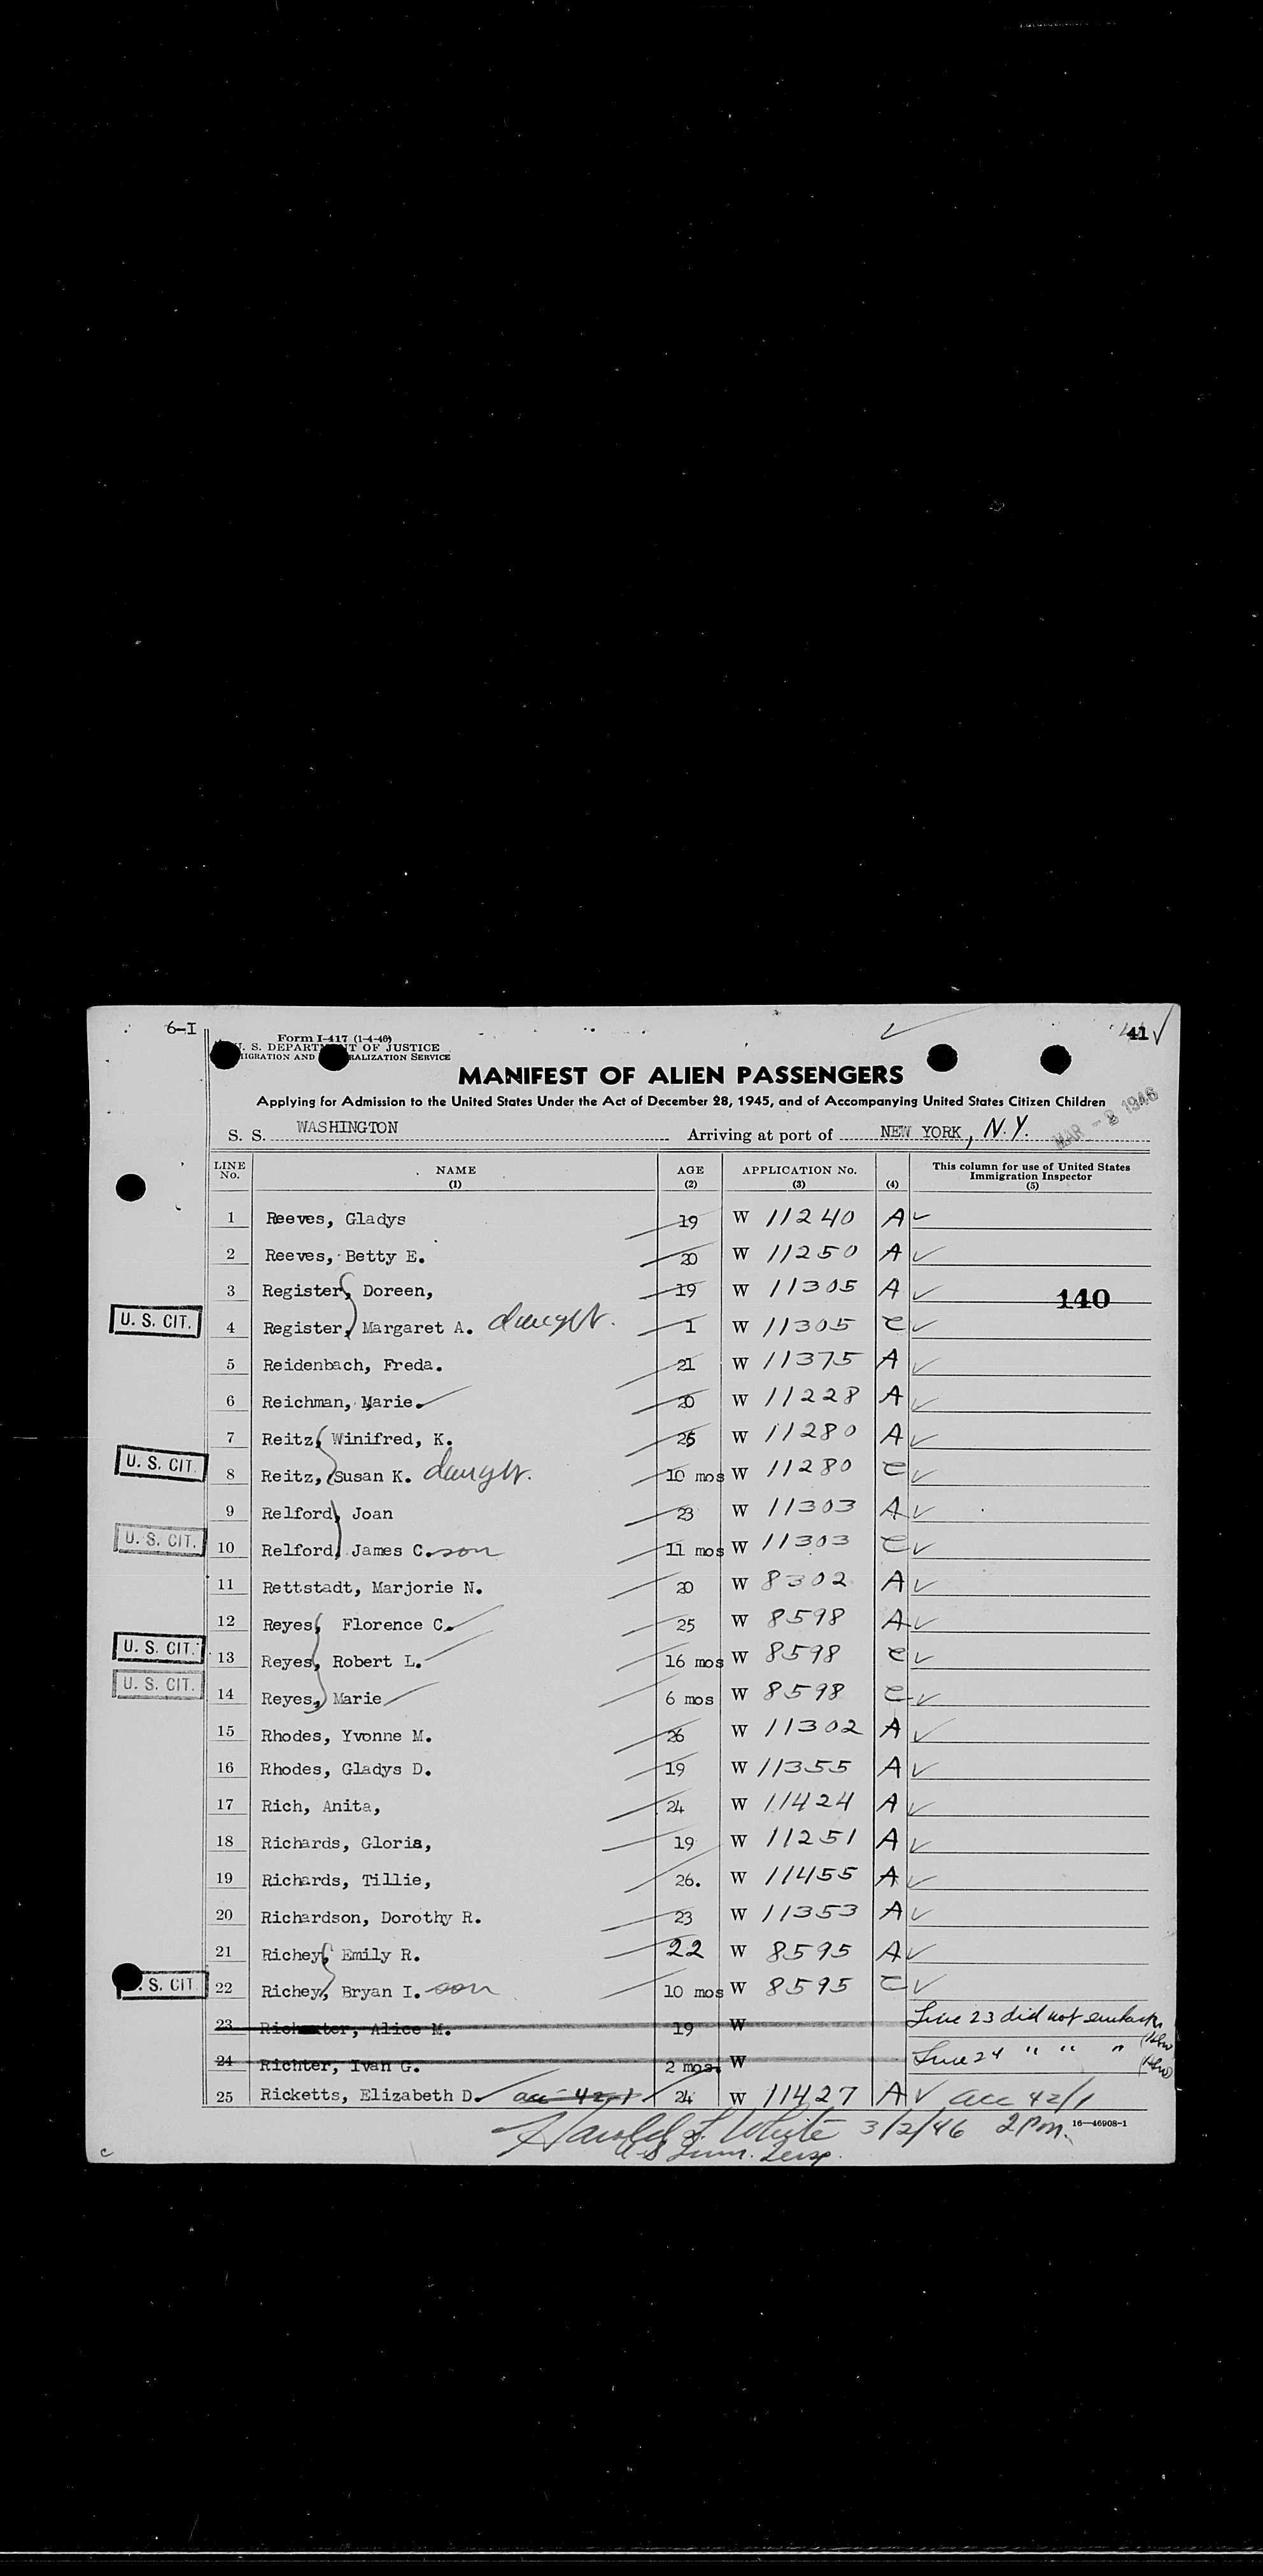 6-I
41
Form I-417 (1-4-46)
U. S. DEPARTMENT OF JUSTICE
IGRATION AND RALIZATION SERVICE
MANIFEST OF ALIEN PASSENGERS
Applying for Admission to the United States Under the Act of December 28, 1945, and of Accompanying United States Citizen Children
MAR - 2 1946
S. S. WASHINGTON Arriving at port of NEW YORK, N.Y.
LINE No. NAME (1) AGE (2) APPLICATION No. (3) (4) This column for use of United States Immigration Inspector (5)
1 Reeves, Gladys 19 W 11240 A
2 Reeves, Betty E. 20 W 11250 A
3 Register, Doreen, 19 W 11305 A 140
U. S. CIT. 4 Register, Margaret A. daught. 1 W 11305 C
5 Reidenbach, Freda. 21 W 11375 A
6 Reichman, Marie. 20 W 11228 A
7 Reitz, Winifred, K. 25 W 11280 A
U. S. CIT. 8 Reitz, Susan K. daught. 10 mos W 11280 C
9 Relford, Joan 23 W 11303 A
U. S. CIT. 10 Relford, James C. son 11 mos W 11303 C
11 Rettstadt, Marjorie N. 20 W 8302 A
12 Reyes, Florence C. 25 W 8598 A
U. S. CIT. 13 Reyes, Robert L. 16 mos W 8598 C
U. S. CIT. 14 Reyes, Marie 6 mos W 8598 C
15 Rhodes, Yvonne M. 26 W 11302 A
16 Rhodes, Gladys D. 19 W 11355 A
17 Rich, Anita, 24 W 11424 A
18 Richards, Gloria, 19 W 11251 A
19 Richards, Tillie, 26. W 11455 A
20 Richardson, Dorothy R. 23 W 11353 A
21 Richey, Emily R. 22 W 8595 A
. S. CIT 22 Richey, Bryan I. son 10 mos W 8595 C
23 Alice M. 19 W Line 23 did not embark
24 Richter, Ivan G. 2 mos. W Line 24 " " "
25 Ricketts, Elizabeth D. acc 42-1 24 W 11427 A acc 42/1
Harold F. White 3/2/46 2 Pm. 16—46908-1
U S Imm. Insp.